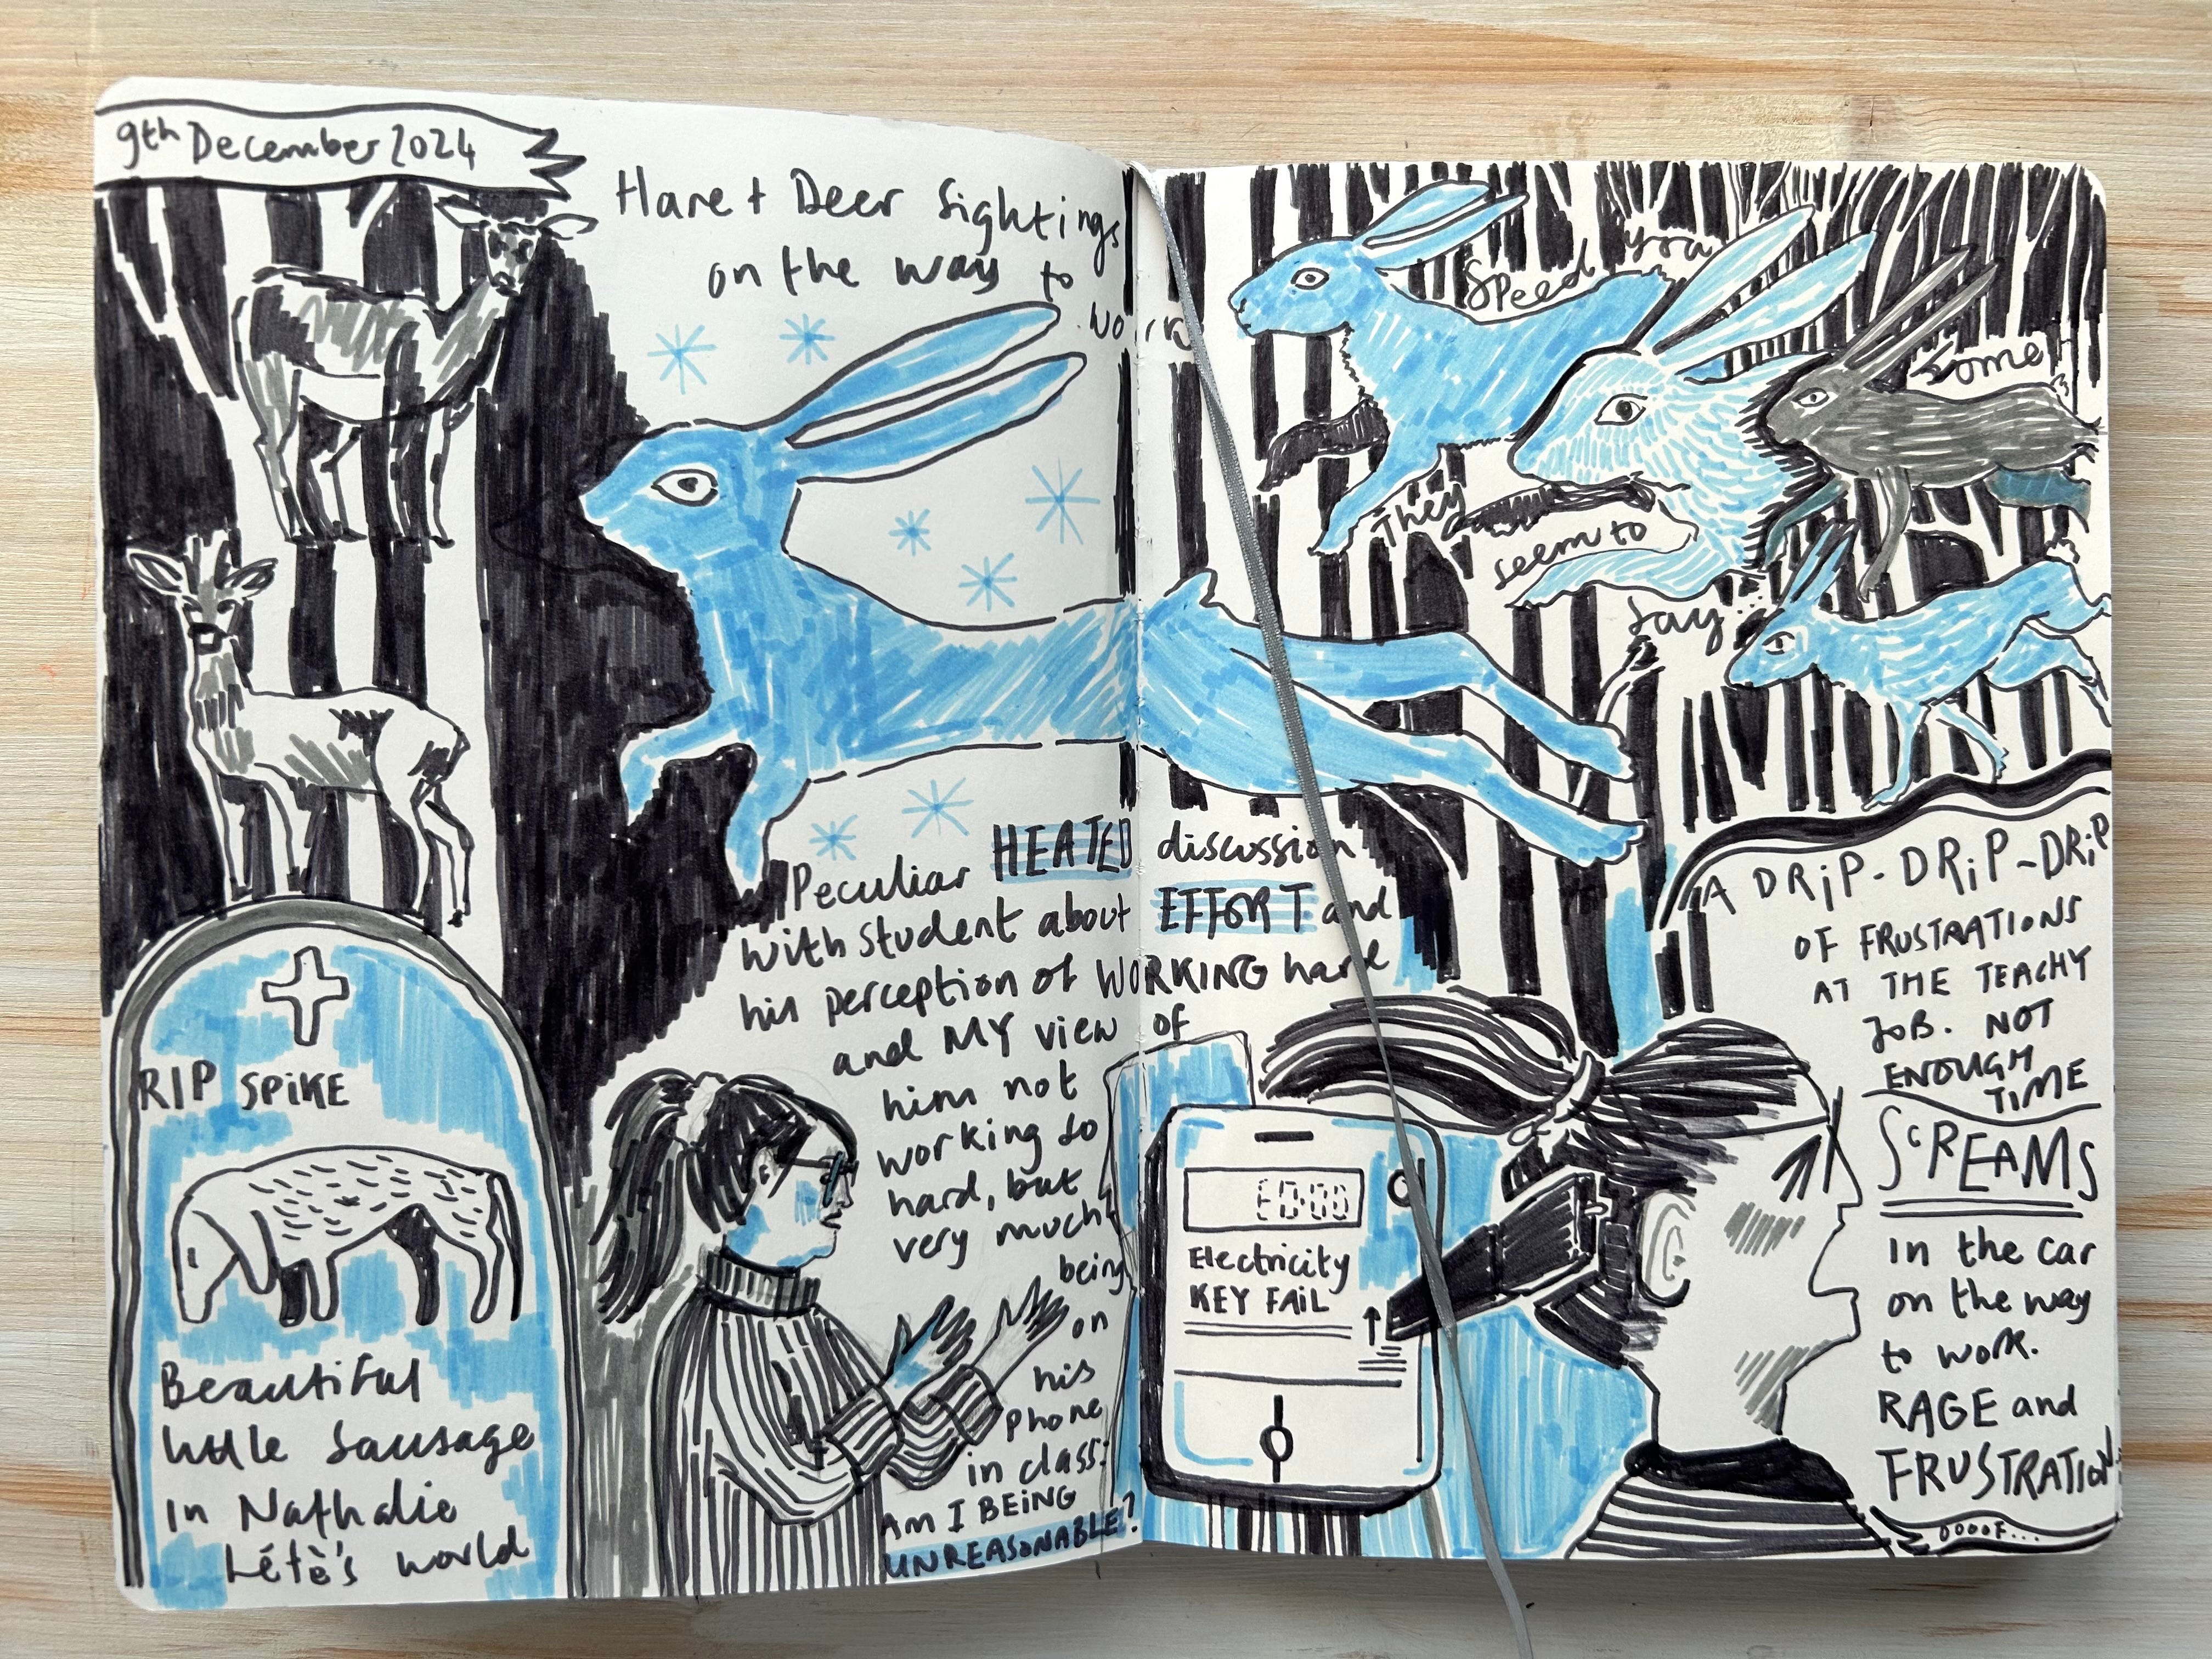 9th December 2024
Hare + Deer Sightings
on the way to
work
Speed you
Some
They
seem to
say...
Peculiar HEATED discussion
with student about EFFORT and
his perception of WORKING hard
and MY view of
him not
working so
hard, but
very much
being
on
his
Phone
in class.
AM I BEING
UNREASONABLE?
RIP SPIKE
Beautiful
little Sausage
in Nathalie
Létè's world
£0.00
Electricity
KEY FAIL
A DRiP-DRiP-DRiP
OF FRUSTRATIONS
AT THE TEACHY
JOB. NOT
ENOUGH
TIME
SCREAMS
in the car
on the way
to work.
RAGE and
FRUSTRATION.
OOOOF...